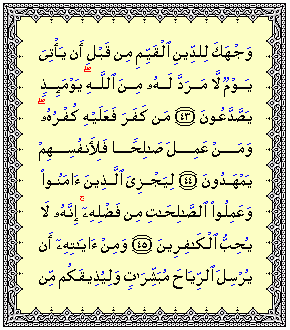 وَجْهَكَ لِلدِّينِ ٱلْقَيِّمِ مِن قَبْلِ أَن يَأْتِىَ
يَوْمٌ لَّا مَرَدَّ لَهُۥ مِنَ ٱللَّهِ ۖ يَوْمَئِذٍ
يَصَّدَّعُونَ ٤٣ مَن كَفَرَ فَعَلَيْهِ كُفْرُهُۥ ۖ
وَمَنْ عَمِلَ صَـٰلِحًا فَلِأَنفُسِهِمْ
يَمْهَدُونَ ٤٤ لِيَجْزِىَ ٱلَّذِينَ ءَامَنُوا۟
وَعَمِلُوا۟ ٱلصَّـٰلِحَـٰتِ مِن فَضْلِهِۦٓ ۚ إِنَّهُۥ لَا
يُحِبُّ ٱلْكَـٰفِرِينَ ٤٥ وَمِنْ ءَايَـٰتِهِۦٓ أَن
يُرْسِلَ ٱلرِّيَاحَ مُبَشِّرَٰتٍ وَلِيُذِيقَكُم مِّن